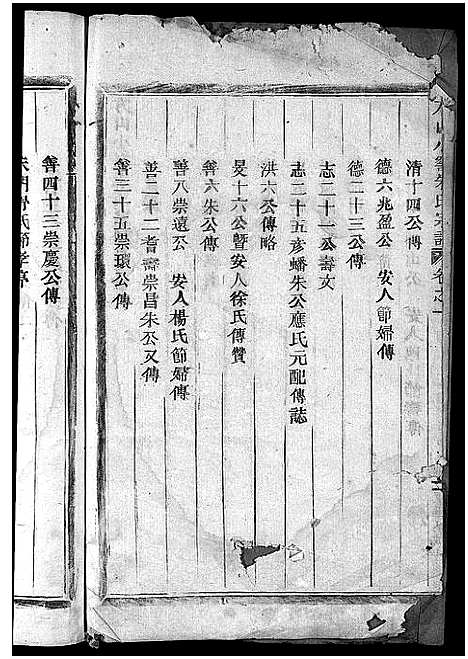 朱氏宗譜 卷之一
清十四公傳
德六兆盈公 安人節婦傳
德二十三公傳
志二十一公壽文
志二十五彥蟠朱公應氏元配傳誌
洪六公傳略
旻十六公暨安人徐氏傳贊
善六朱公傳
善八崇遠公 安人楊氏節婦傳
善二十二耆壽崇昌朱公又傳
善三十五崇環公傳
善四十三崇慶公傳
氏節孝